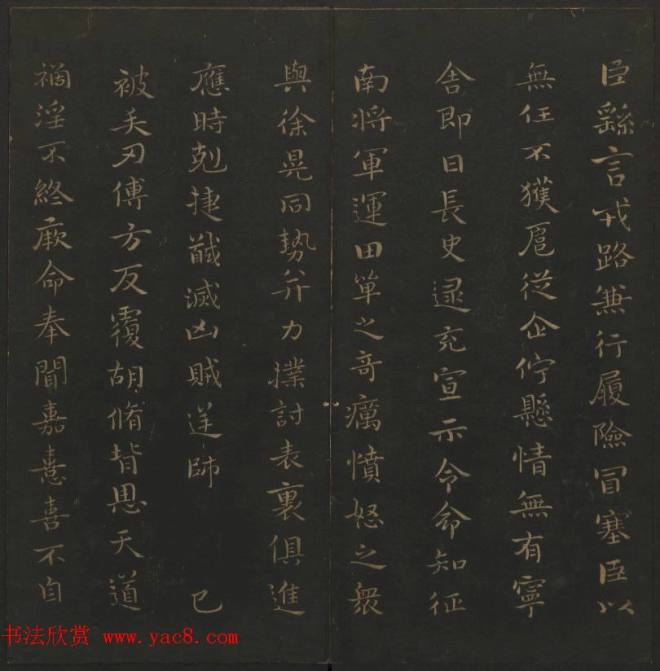 臣繇言戎路兼行履險冒寒臣以
無任不獲扈從企佇懸情無有寧
舍即日長史逯充宣示令命知征
南將軍運田單之奇厲憤怒之眾
與徐晃同勢并力撲討表裏俱進
應時剋捷馘滅凶賊逆帥 已
被矢刃傅方反覆胡脩背恩天道
禍淫不終厥命奉聞嘉憙喜不自
书法欣赏 www.yac8.com